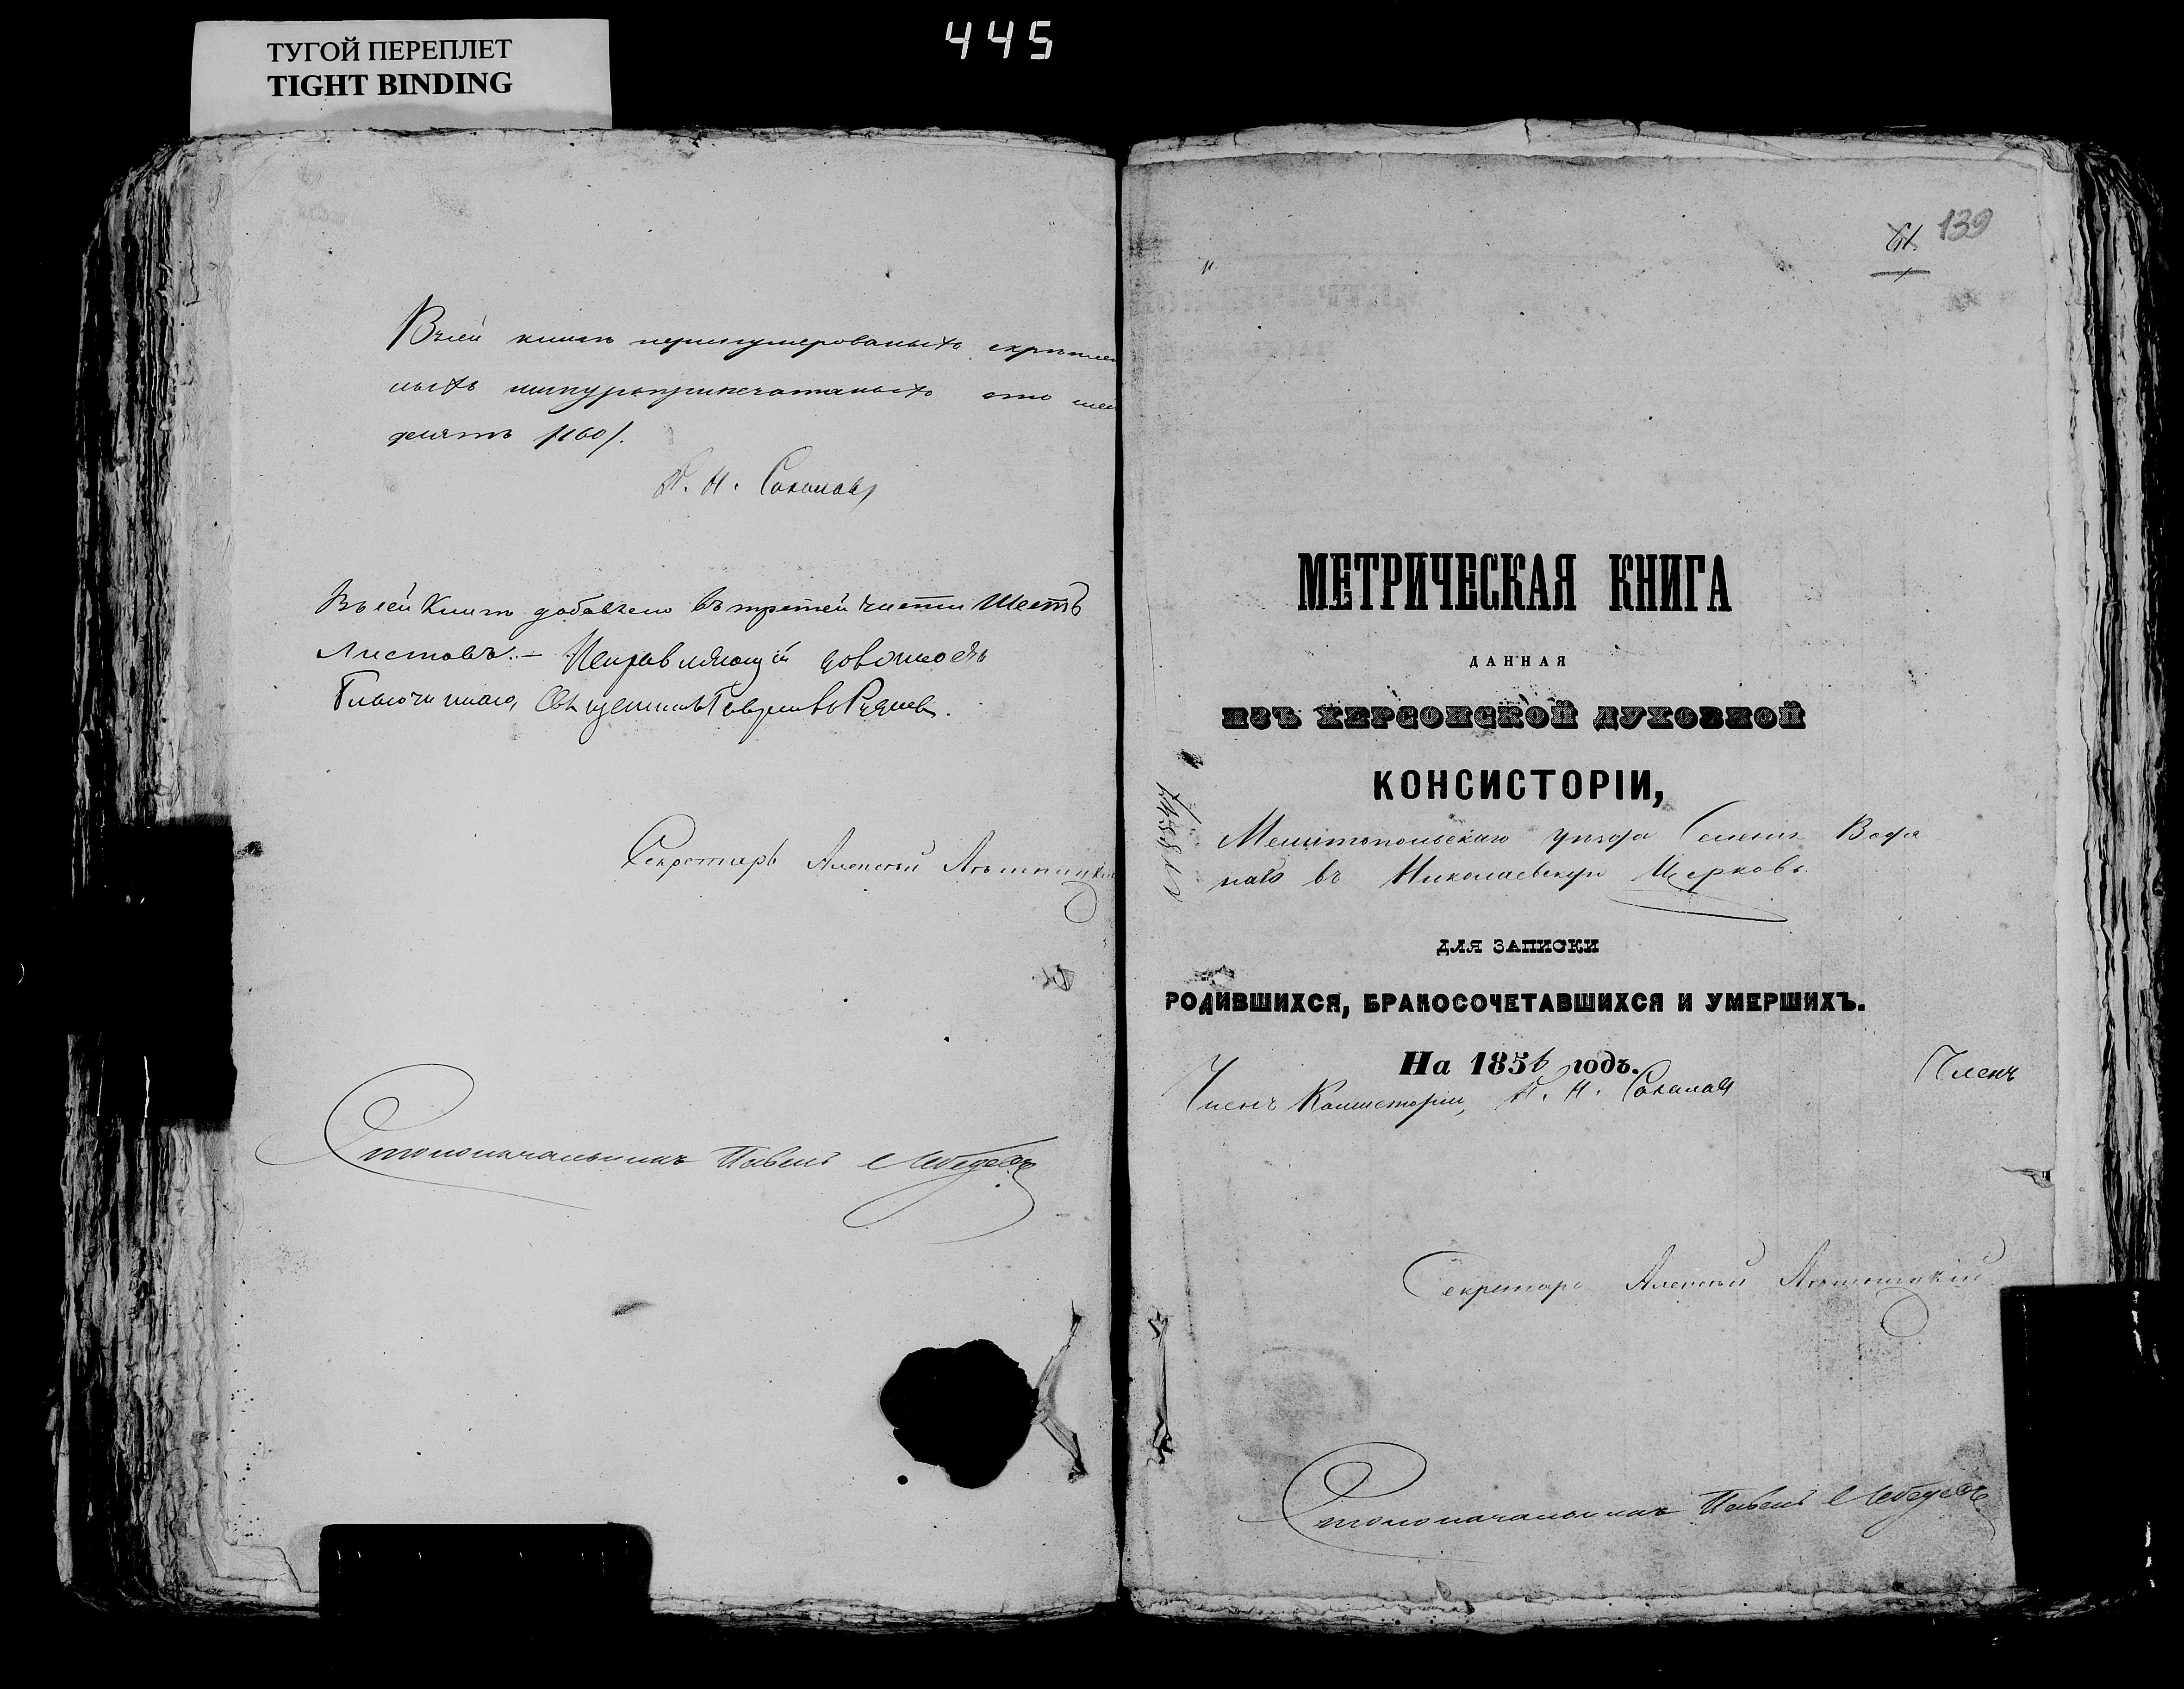 ТУГОЙ ПЕРЕПЛЕТ
TIGHT BINDING
445
Въ сей книгѣ перенумерованыхъ скрѣплен
ныхъ шнуроприпечатаныхъ сто шес
десятъ /160/.
Н. Соколовъ
Въ сей Книгѣ добавлено въ третей части Шесть
Листовъ. – Исправляющій должность
Благочиннаго, Священникъ
Секретарь Алексѣй
Столоначальникъ Павелъ Лебедевъ
61. 139
МЕТРИЧЕСКАЯ КНИГА
ДАННАЯ
ИЗЪ ХЕРСОНСКОЙ ДУХОВНОЙ
КОНСИСТОРІИ,
Мелитопольскаго уѣзда Селенія
въ Николаевскую Церковь.
ДЛЯ ЗАПИСКИ
РОДИВШИХСЯ, БРАКОСОЧЕТАВШИХСЯ И УМЕРШИХЪ.
На 1856 годъ.
Членъ
Членъ Консисторіи, Н. Соколовъ
Секретарь Алексѣй
Столоначальникъ Павелъ Лебедевъ